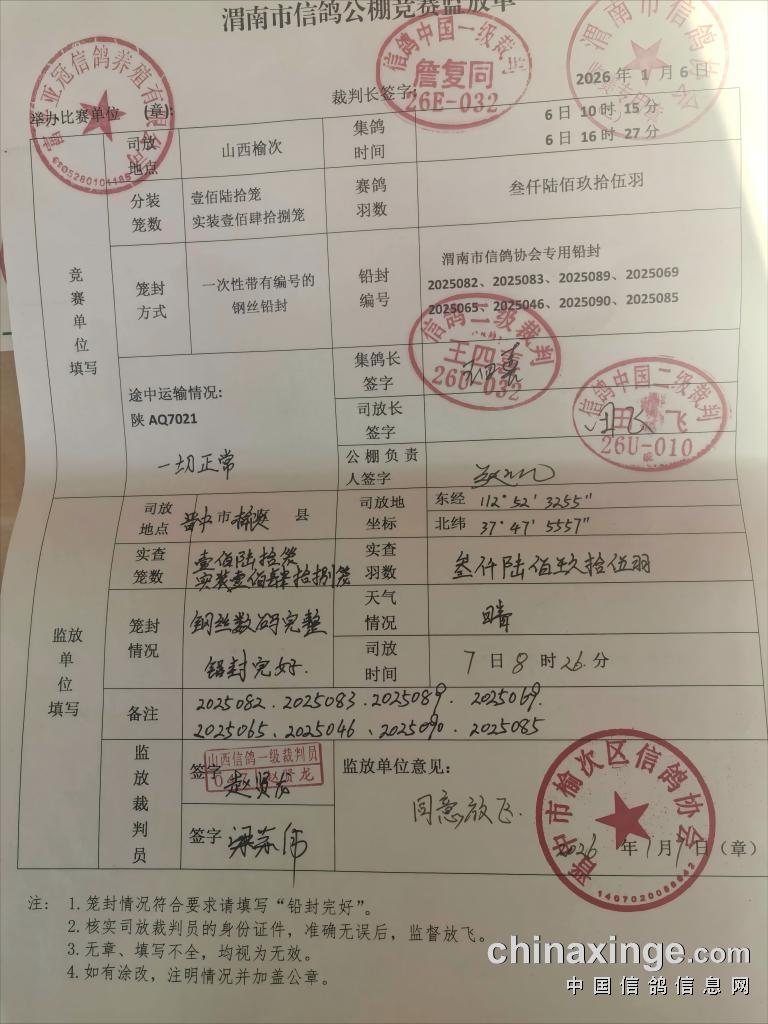 渭南市信鸽公棚竞赛监放单
2026 年 1 月 6 日
举办比赛单位 (章):
裁判长签字:
信鸽中国一级裁判
詹复同
26E-032
亚冠信鸽养殖有限公司
渭南市信鸽
司放地点
山西榆次
集鸽时间
6 日 10 时 15 分
6 日 16 时 27 分
分装笼数
壹佰陆拾笼
实装壹佰肆拾捌笼
赛鸽羽数
叁仟陆佰玖拾伍羽
竞赛单位填写
笼封方式
一次性带有编号的
钢丝铅封
铅封编号
渭南市信鸽协会专用铅封
2025082、2025083、2025089、2025069
2025065、2025046、2025090、2025085
途中运输情况:
陕 AQ7021
一切正常
集鸽长签字
信鸽二级裁判
王四喜
26U-032
司放长签字
田飞
信鸽中国二级裁判
田 飞
26U-010
公棚负责人签字
监放单位填写
司放地点
晋中 市 榆次 县
司放地坐标
东经 112° 52' 3255"
北纬 37° 47' 5557"
实查笼数
壹佰陆拾笼
实装壹佰肆拾捌笼
实查羽数
叁仟陆佰玖拾伍羽
笼封情况
钢丝数码完整
铅封完好.
天气情况
晴
司放时间
7 日 8 时 26 分
备注
2025082. 2025083. 2025089. 2025069.
2025065、2025046、2025090. 2025085
监放裁判员
签字
山西信鸽一级裁判员
赵贤龙
签字
监放单位意见:
同意放飞.
晋中市榆次区信鸽协会
2026 年 1 月 7 日 (章)
注: 1. 笼封情况符合要求请填写“铅封完好”。
2. 核实司放裁判员的身份证件，准确无误后，监督放飞。
3. 无章、填写不全，均视为无效。
4. 如有涂改，注明情况并加盖公章。
chinaxinge.com
中国信鸽信息网